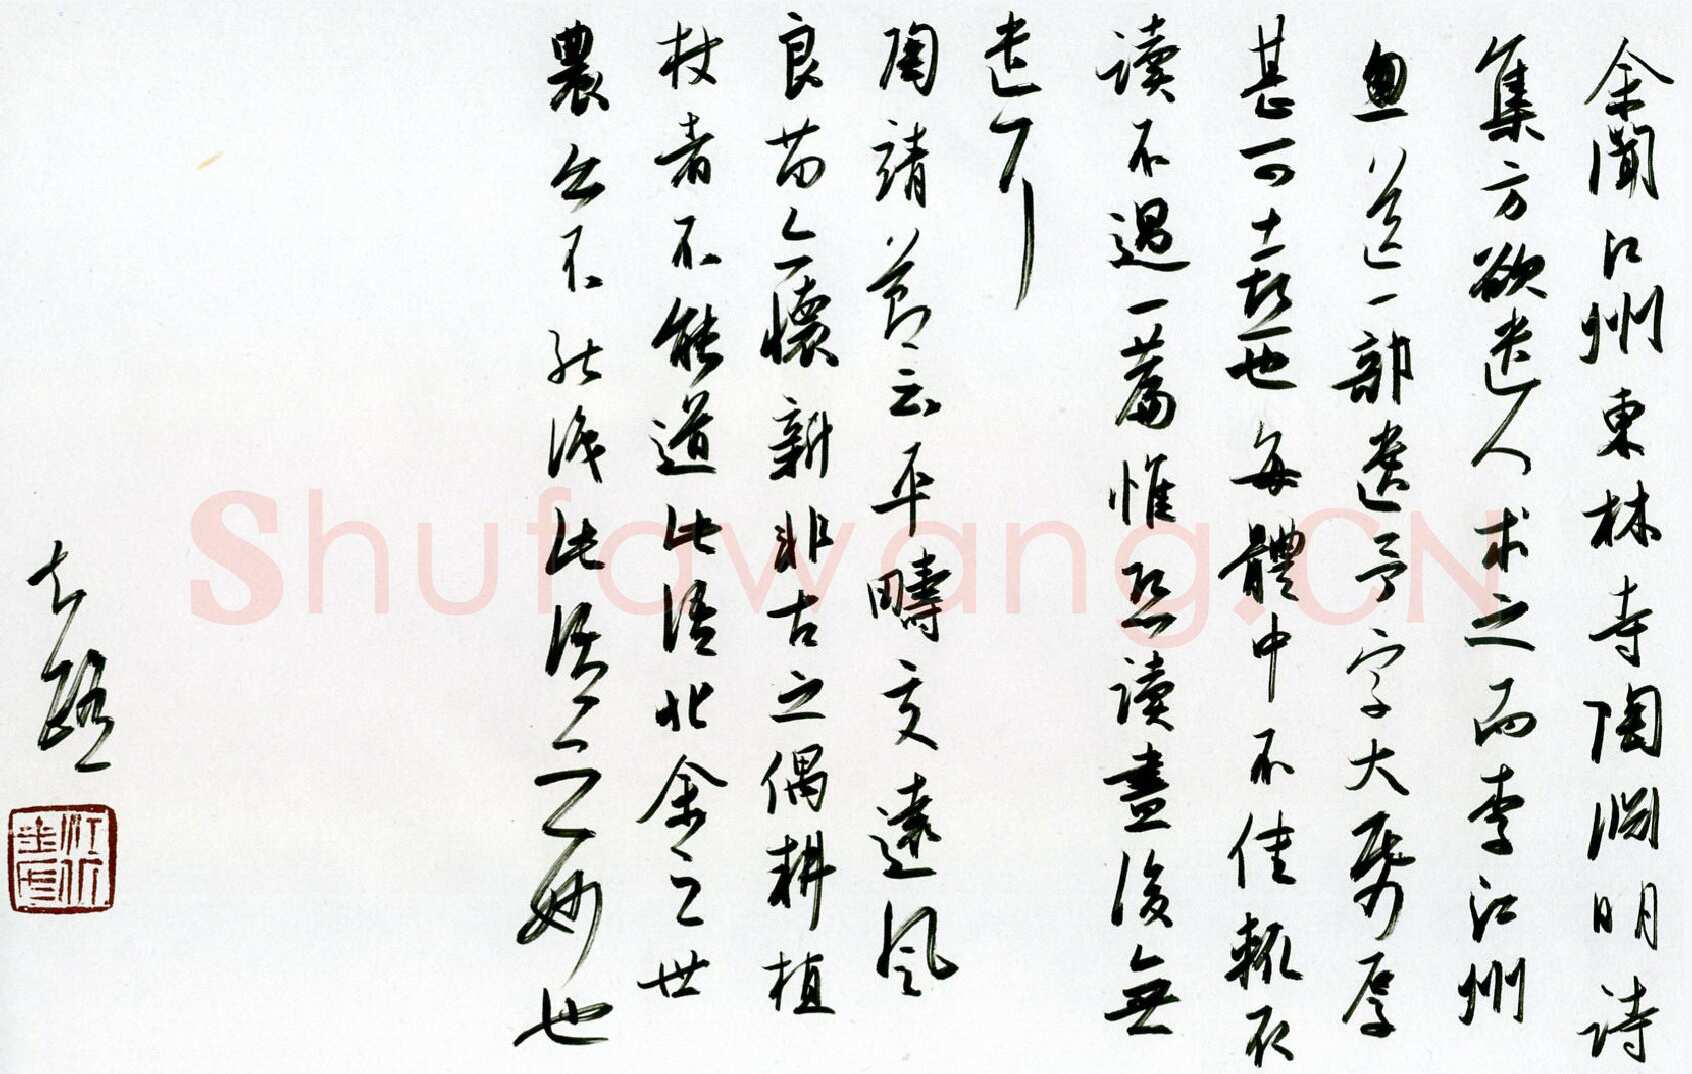 余聞江州東林寺陶淵明詩
集方欲遣人求之而李江州
忽送一部遺予字大紙厚
甚可喜也每體中不佳輒取
讀不過一篇惟恐讀盡後無
遣耳
陶靖節云平疇交遠風
良苗亦懷新非古之偶耕植
杖者不能道此語非余之世
農亦不能識此語之妙也
Shufawang.CN